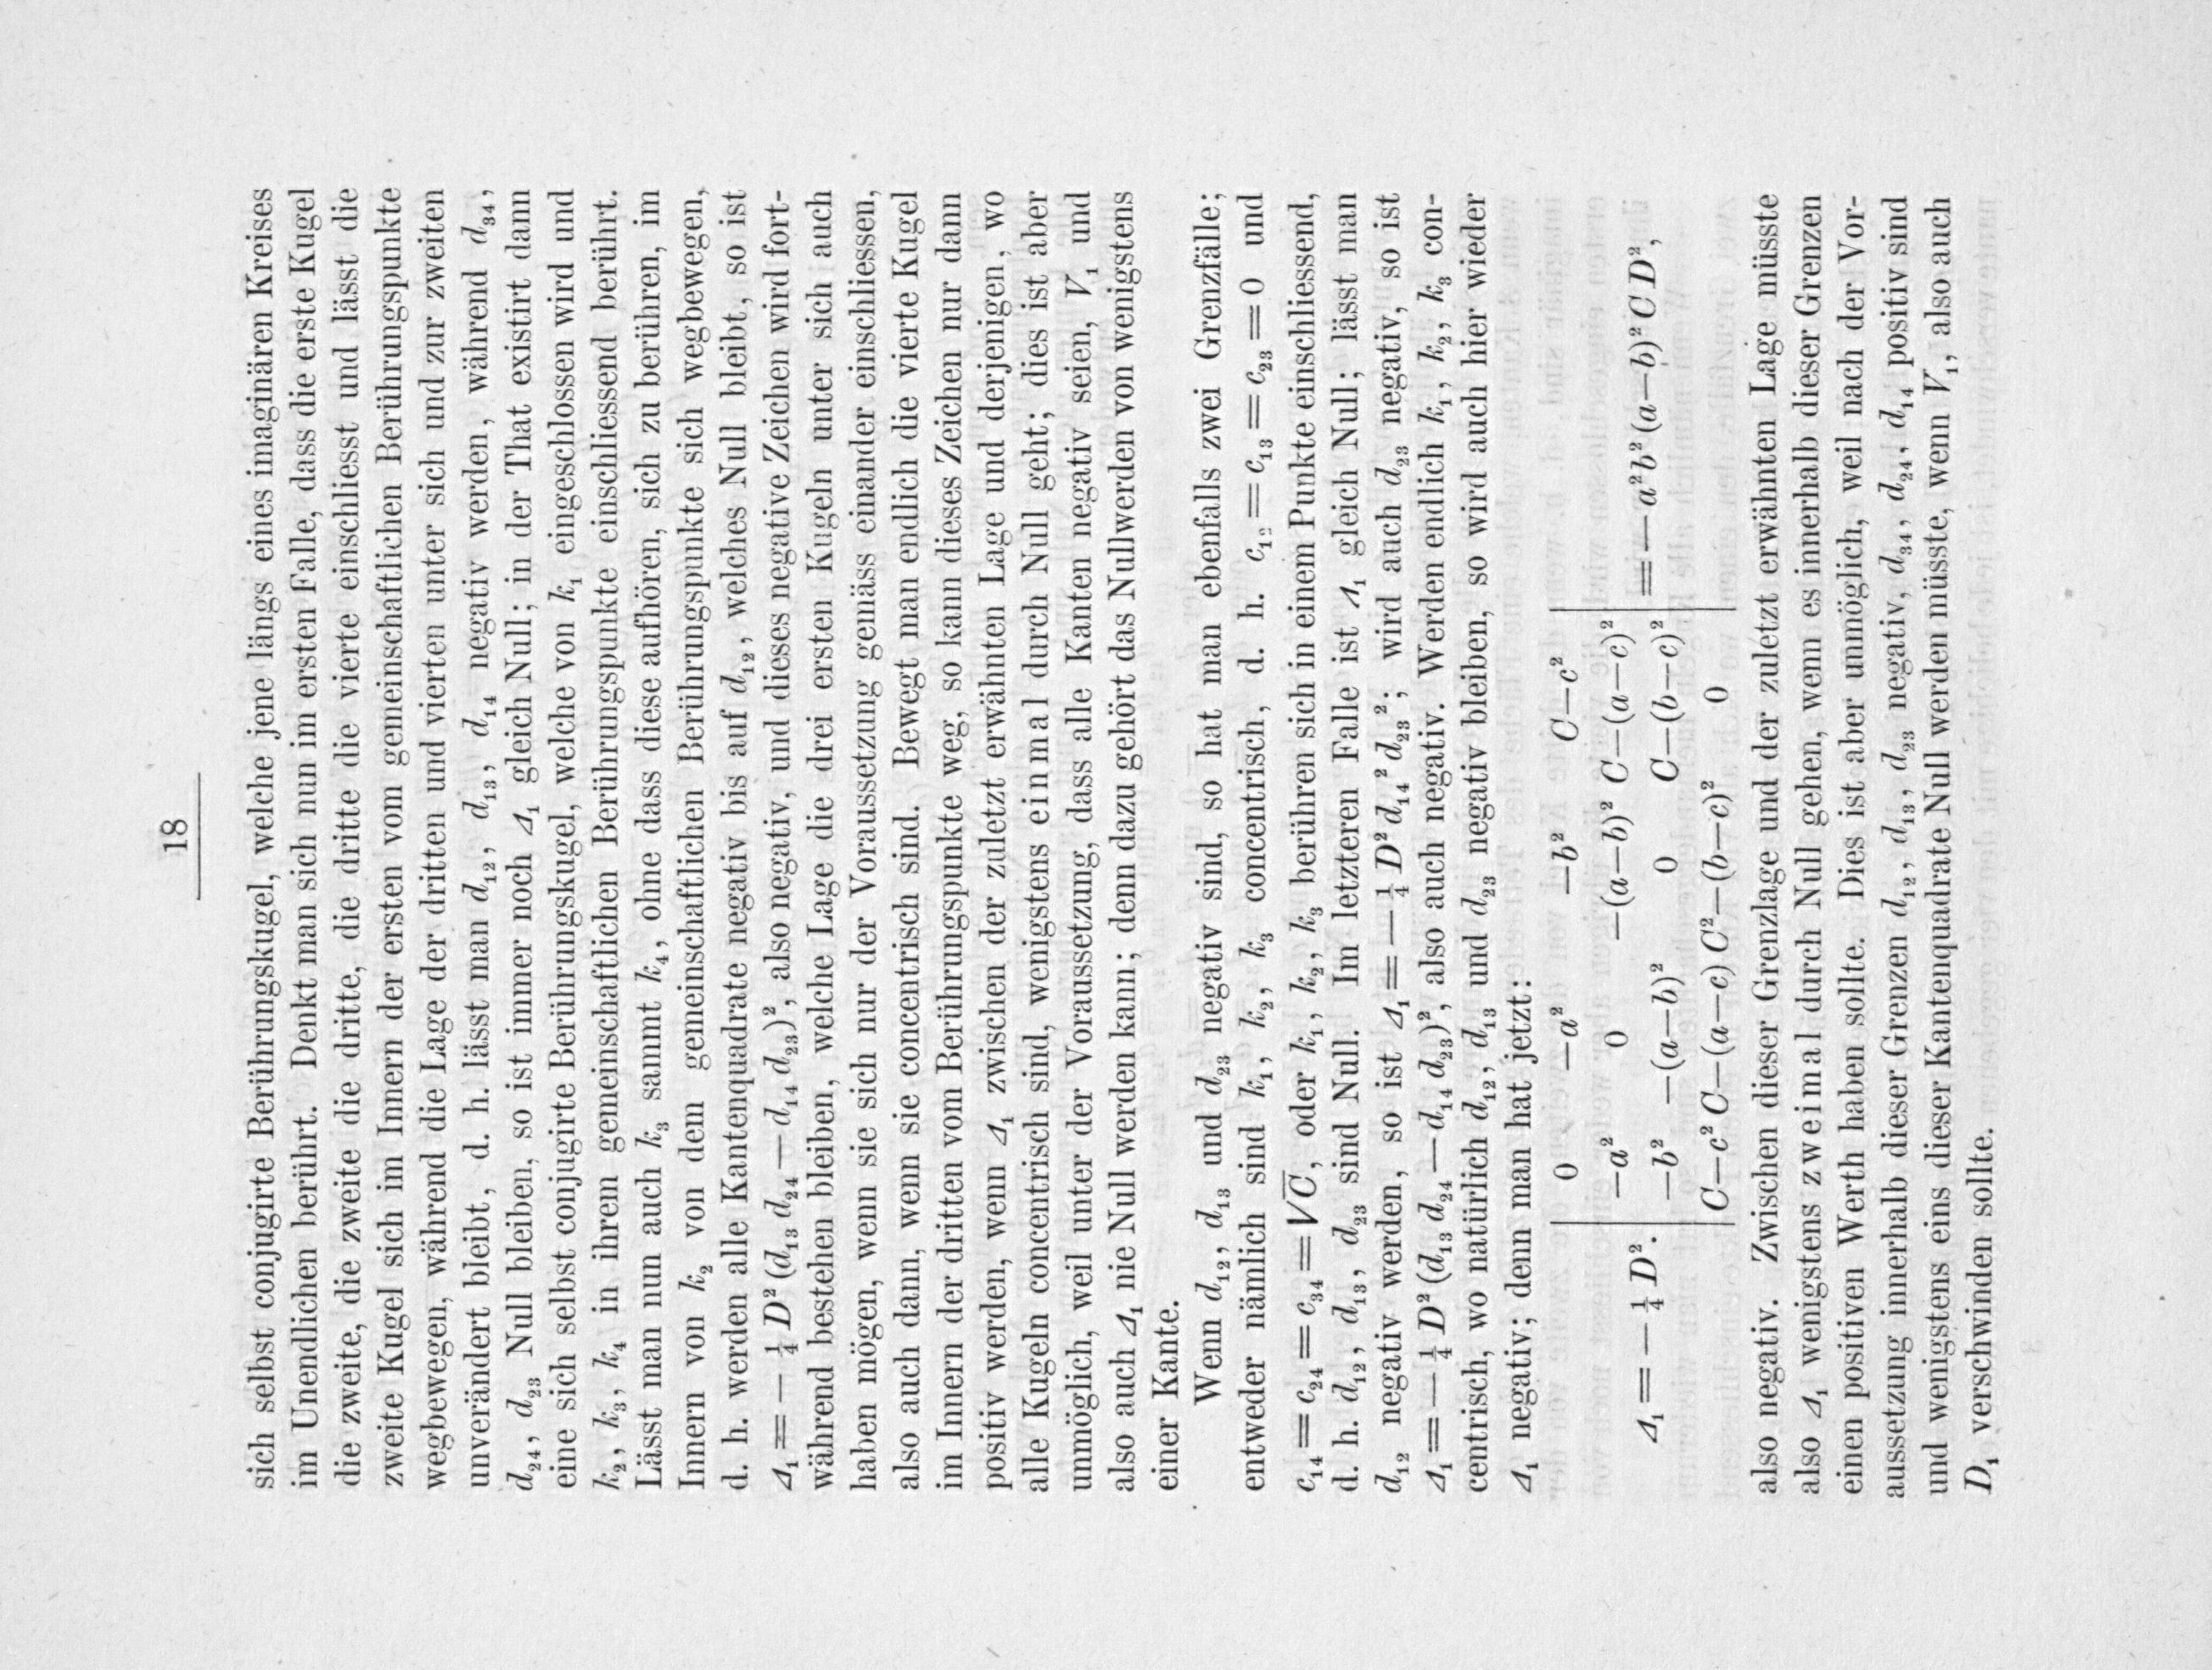 18
sich selbst conjugirte Berührungskugel, welche jene längs eines imaginären Kreises
im Unendlichen berührt. Denkt man sich nun im ersten Falle, dass die erste Kugel
die zweite, die zweite die dritte, die dritte die vierte einschliesst und lässt die
zweite Kugel sich im Innern der ersten vom gemeinschaftlichen Berührungspunkte
wegbewegen, während die Lage der dritten und vierten unter sich und zur zweiten
unverändert bleibt, d. h. lässt man d₁₂, d₁₃, d₁₄ negativ werden, während d₃₄,
d₂₄, d₂₃ Null bleiben, so ist immer noch Δ₁ gleich Null; in der That existirt dann
eine sich selbst conjugirte Berührungskugel, welche von k₁ eingeschlossen wird und
k₂, k₃, k₄ in ihrem gemeinschaftlichen Berührungspunkte einschliessend berührt.
Lässt man nun auch k₃ sammt k₄, ohne dass diese aufhören, sich zu berühren, im
Innern von k₂ von dem gemeinschaftlichen Berührungspunkte sich wegbewegen,
d. h. werden alle Kantenquadrate negativ bis auf d₁₂, welches Null bleibt, so ist
Δ₁ = — ¼ D² (d₁₃ d₂₄ — d₁₄ d₂₃)², also negativ, und dieses negative Zeichen wird fort-
während bestehen bleiben, welche Lage die drei ersten Kugeln unter sich auch
haben mögen, wenn sie sich nur der Voraussetzung gemäss einander einschliessen,
also auch dann, wenn sie concentrisch sind. Bewegt man endlich die vierte Kugel
im Innern der dritten vom Berührungspunkte weg, so kann dieses Zeichen nur dann
positiv werden, wenn Δ₁ zwischen der zuletzt erwähnten Lage und derjenigen, wo
alle Kugeln concentrisch sind, wenigstens einmal durch Null geht; dies ist aber
unmöglich, weil unter der Voraussetzung, dass alle Kanten negativ seien, V₁ und
also auch Δ₁ nie Null werden kann; denn dazu gehört das Nullwerden von wenigstens
einer Kante.
Wenn d₁₂, d₁₃ und d₂₃ negativ sind, so hat man ebenfalls zwei Grenzfälle;
entweder nämlich sind k₁, k₂, k₃ concentrisch, d. h. c₁₂ = c₁₃ = c₂₃ = 0 und
c₁₄ = c₂₄ = c₃₄ = √C, oder k₁, k₂, k₃ berühren sich in einem Punkte einschliessend,
d. h. d₁₂, d₁₃, d₂₃ sind Null. Im letzteren Falle ist Δ₁ gleich Null; lässt man
d₁₂ negativ werden, so ist Δ₁ = — ¼ D² d₁₄² d₂₃²; wird auch d₂₃ negativ, so ist
Δ₁ = — ¼ D² (d₁₃ d₂₄ — d₁₄ d₂₃)², also auch negativ. Werden endlich k₁, k₂, k₃ con-
centrisch, wo natürlich d₁₂, d₁₃ und d₂₃ negativ bleiben, so wird auch hier wieder
Δ₁ negativ; denn man hat jetzt:
0 —a² —b² C—c²
—a² 0 —(a—b)² C—(a—c)²
Δ₁ = — ¼ D². —b² —(a—b)² 0 C—(b—c)² = — a²b² (a—b)² C D²,
C—c² C—(a—c) C²—(b—c)² 0
also negativ. Zwischen dieser Grenzlage und der zuletzt erwähnten Lage müsste
also Δ₁ wenigstens zweimal durch Null gehen, wenn es innerhalb dieser Grenzen
einen positiven Werth haben sollte. Dies ist aber unmöglich, weil nach der Vor-
aussetzung innerhalb dieser Grenzen d₁₂, d₁₃, d₂₃ negativ, d₃₄, d₂₄, d₁₄ positiv sind
und wenigstens eins dieser Kantenquadrate Null werden müsste, wenn V₁, also auch
D₁ verschwinden sollte.